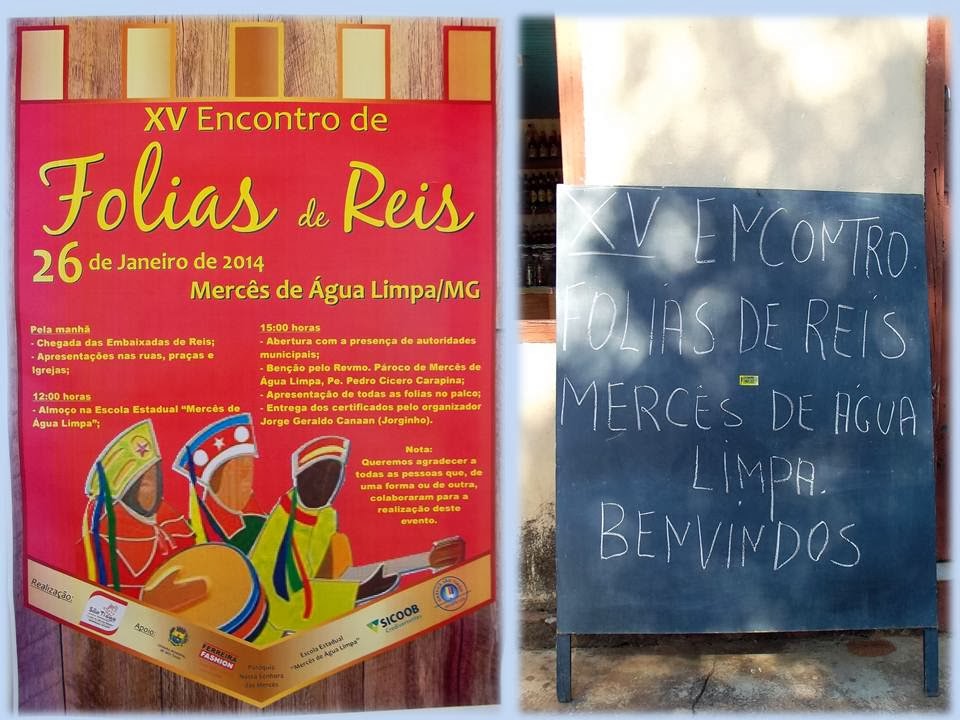 XV Encontro de
Folias de Reis
26 de Janeiro de 2014
Mercês de Água Limpa/MG
Pela manhã
- Chegada das Embaixadas de Reis;
- Apresentações nas ruas, praças e
Igrejas;
12:00 horas
- Almoço na Escola Estadual “Mercês de
Água Limpa”;
15:00 horas
- Abertura com a presença de autoridades
municipais;
- Benção pelo Revmo. Pároco de Mercês de
Água Limpa, Pe. Pedro Cícero Carapina;
- Apresentação de todas as folias no palco;
- Entrega dos certificados pelo organizador
Jorge Geraldo Canaan (Jorginho).
Nota:
Queremos agradecer a
todas as pessoas que, de
uma forma ou de outra,
colaboraram para a
realização deste
evento.
Realização:
São Tiago
Apoio:
FERREIRA
FASHION
Paróquia
Nossa Senhora
das Mercês
Escola Estadual
"Mercês de Água Limpa"
SICOOB
Credivertentes
XV ENCONTRO
FOLIAS DE REIS
MERCÊS DE ÁGUA
LIMPA.
BENVINDOS